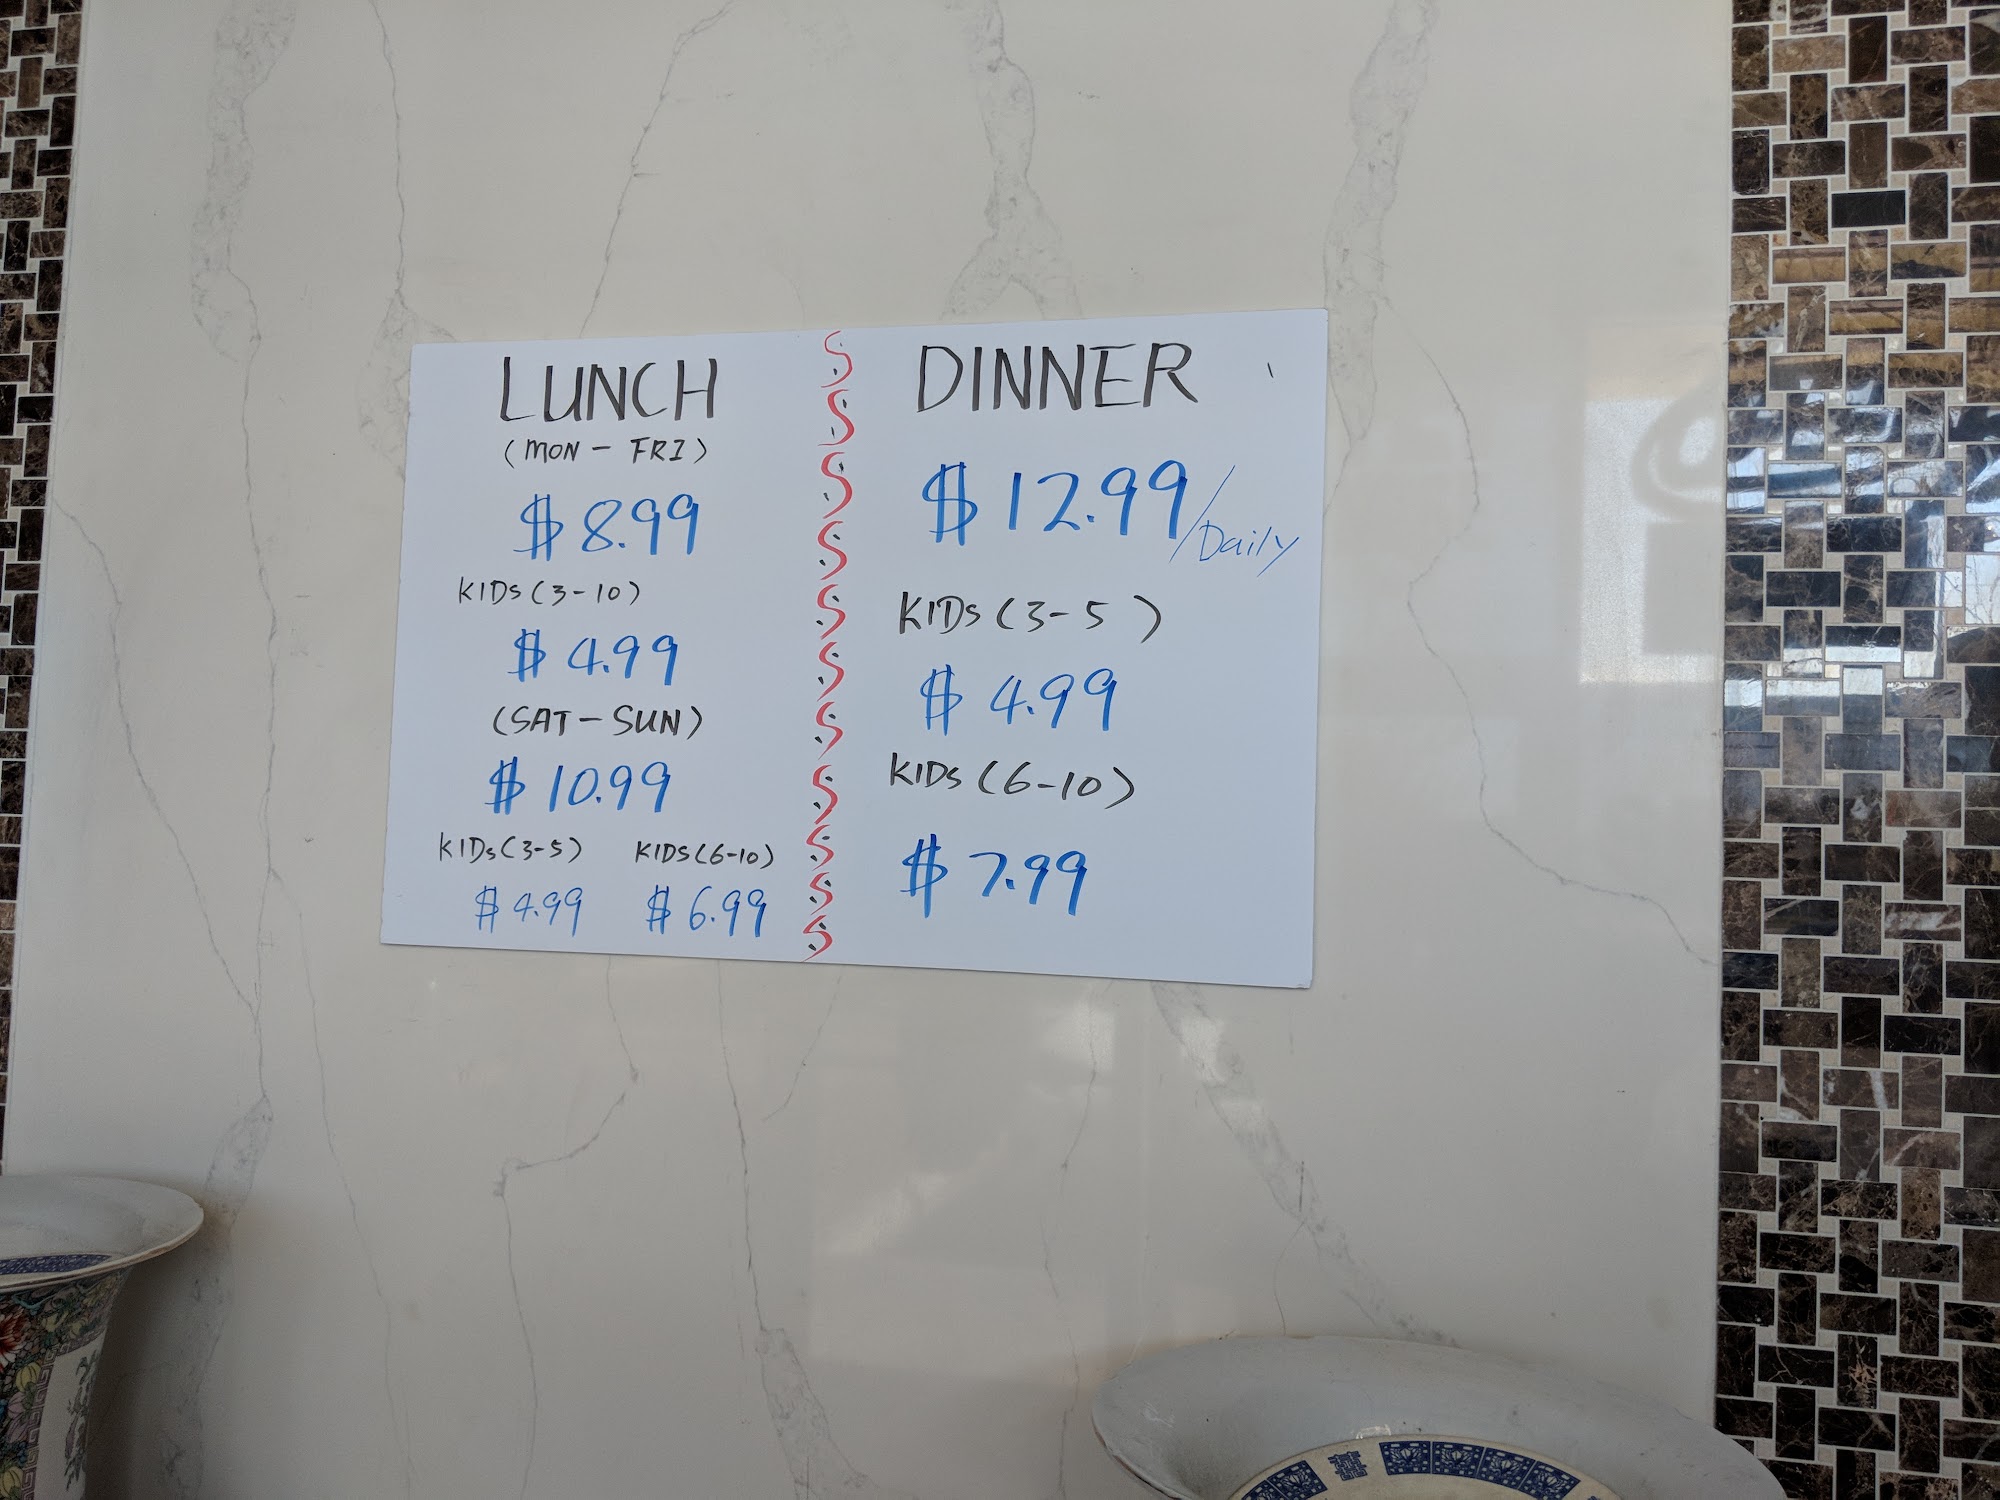 LUNCH
(MON - FRI)
$8.99
KIDS (3-10)
$4.99
(SAT - SUN)
$10.99
KIDS (3-5) KIDS (6-10)
$4.99 $6.99
DINNER
$12.99/Daily
KIDS (3-5)
$4.99
KIDS (6-10)
$7.99